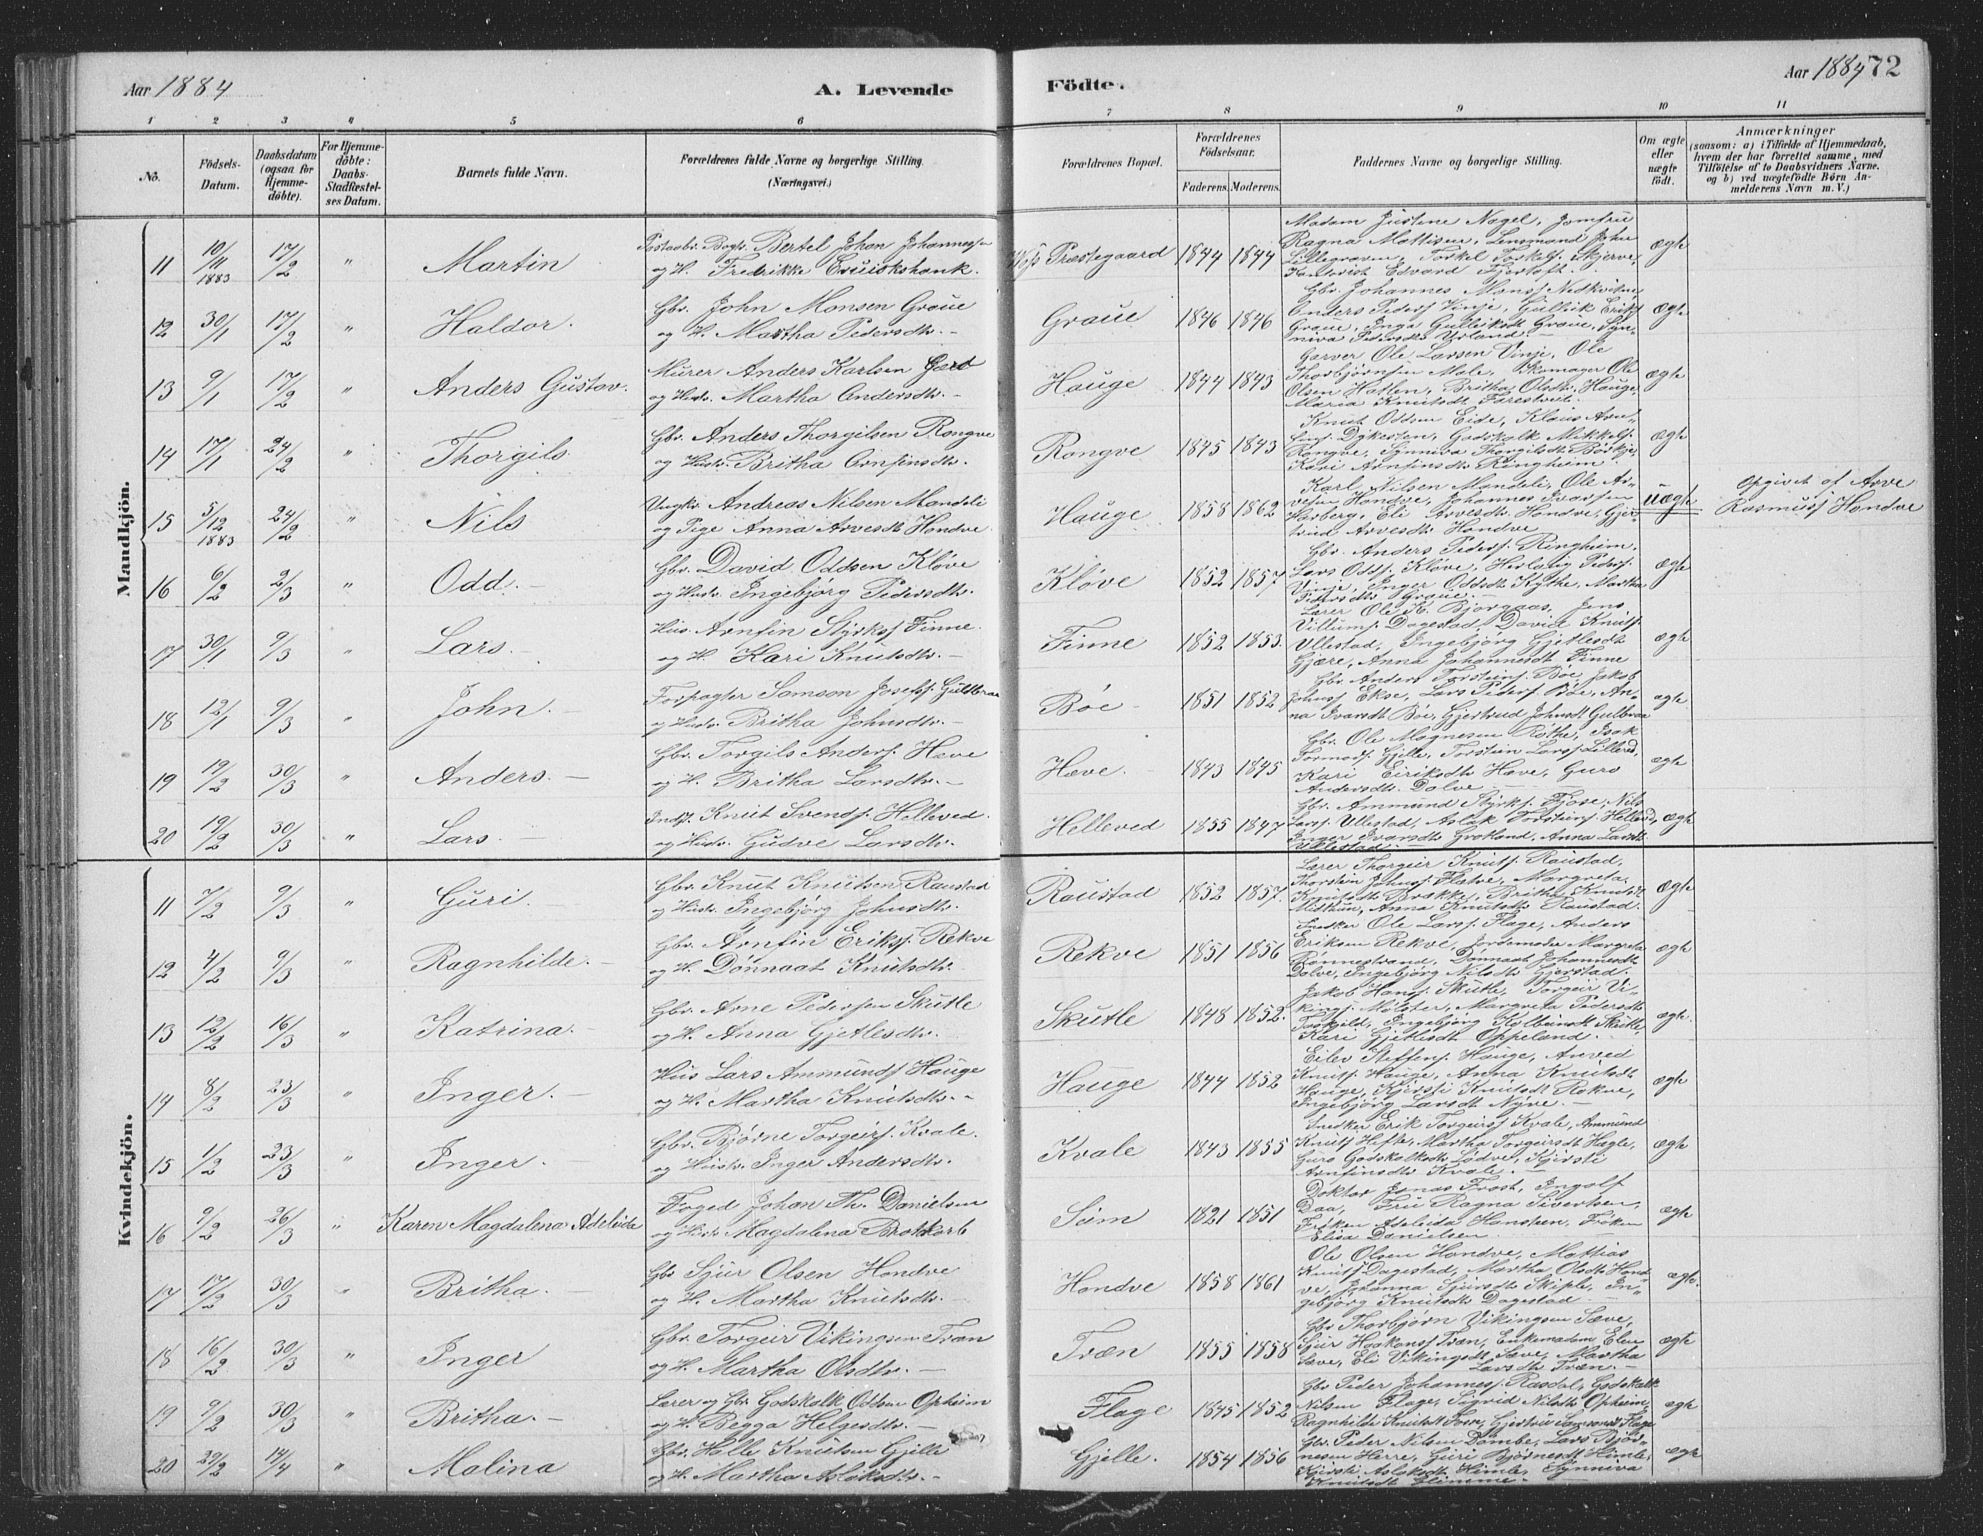 Aar 1884
A. Levende
Födte.
Aar 1884 72
1 2 3 4 5 6 7 8 9 10 11
No.
Födsels-Datum.
Daabsdatum (ogsaa for Hjemme-döbte).
For Hjemme-döbte: Daabs-Stadfæstel-ses Datum.
Barnets fulde Navn.
Forældrenes fulde Navne og borgerlige Stilling.
(Næringsvei.)
Forældrenes Bopæl.
Forældrenes Födselsaar.
Faderens. Moderens.
Faddernes Navne og borgerlige Stilling.
Om ægte eller uægte födt.
Anmærkninger
(saasom: a) i Tilfælde af Hjemmedaab, hvem der har forrettet samme, med Tilföielse af to Daabsvidners Navne. og b) ved uægtefödte Börn An-melderens Navn m. V.)
Mandkjön.
11 10/11 1883 17/2 " Martin
Bertel Johan Johannessen
og H. Fredrikke
Præstegaard 1844 1844
Madam Justine Nagel, Jomfru
Ragna Mattisen, Lensmand John
Lillegraven, Torkel Torkels. Skjerve,
Edvard Fjertoft.
ægte
12 30/1 17/2 " Haldor.
Gbr. John Monsen Graue
og H. Martha Pedersdtr. -
Graue 1846 1846
Gbr. Johannes Monss. Nedkvitne
Anders Peders. Vinje, Gullik Eriks.
Graue, Inga Gulleiksdt. Graue, Syn-
niva Pedersdt. Urland.
ægte
13 9/1 17/2 " Anders Gustav.
Murer Anders Karlsen Gjerd
og Hustr. Martha Andersdtr. -
Hauge 1844 1843
Garver Ole Larsen Vinje, Ole
Thorbjørnsen Mæle, Skomager Ole
Olsen Hatlen, Britha Olsdtr. Hauge,
Maria Knutsdt. Farestveit.
ægte
14 17/1 24/2 " Thorgils
Gbr. Anders Thorgilsen Rongve
og Hustr. Britha Arnfinsdtr.
Rongve 1845 1843
Knut Oddsen Eide, Klaus Arn-
fins. Dykesten, Godskalk Mikkels.
Rongve, Synniva Thorgilsdt.
Kari Arnfinsdt. Ringheim
ægte
15 5/12 1883 24/2 " Nils
Ungkr. Andreas Nilsen Mandeli
og Pige Anna Arvesdt. Hondve
Hauge 1858 1862
Karl Nilsen Mandeli, Ole Ar-
vesen Hondve, Johannes Ivarsen
Eli Arvesdt. Hondve, Gjer-
trud Arvesdt. Hondve
uægte
Opgivet af Arve
Rasmuss. Hondve
16 6/2 2/3 " Odd. -
Gbr. David Oddsen Kløve
og Hustr. Ingebjørg Pedersdtr.
Kløve 1852 1857
Gbr. Anders Peders. Ringheim,
Lars Odds. Kløve, Peders.
Vinje, Inger Oddsdt. Kythe, Martha
Pedersdt. Graue. -
ægte
17 30/1 9/3 " Lars. -
Hus. Arnfin Styrks. Finne.
og H. Kari Knutsdtr. -
Finne 1852 1853.
Lærer Ole K. Bjorgaas, Jens
Villums. Dagestad, David Knuts.
Ullestad, Ingebjørg Gjetlesdt.
Gjære, Anna Johannesdt. Finne
ægte
18 12/1 9/3 " John. -
Forpagter Samson Josefs. Guldbraa
og Hustr. Britha Johnsdtr. -
Bøe - 1851 1852
Gbr. Anders Torsteins. Bøe, Jakob
Johns. Ekse, Lars Peders. Bøe, An-
na Ivarsdt. Bøe, Gjertrud Johnsdt. Gulbraa
ægte
19 19/2 30/3 " Anders. -
Gbr. Torgils Anders. Hæve
og H. Britha Larsdtr. -
Hæve. 1843 1845
Gbr. Ole Magnesen Røthe, Isak
Tormods. Gjelle, Torstein Lars.
Kari Eiriksdtr. Hæve, Guro
Andersdt. Dolve. -
ægte
20 19/2 30/3 " Lars. -
Knut Svends. Helleved.
og Hustr. Gudve Larsdtr. -
Helleved 1855 1847
Gbr. Ammund Styrks. Fjose, Nils
Lars. Ullestad, Aslak Torsteins.
Inger Ivarsdt. Grotland, Anna Larsdt.
Ullestad. -
ægte
Kvindekjön.
11 7/2 9/3 " Guri. -
Gbr. Knut Knutsen Raustad
og Hustr. Ingebjørg Johnsdtr. -
Raustad 1852 1857.
Lærer Thorgeir Knuts. Raustad,
Thorstein Johns. Hæve, Margreta
Knutsdt. Brække, Britha Knutsdt.
Anna Knutsdtr. Raustad.
ægte
12 4/2 9/3 " Ragnhilde. -
Gbr. Arnfin Eriks. Rekve
og H. Dønnaat Knutsdtr.
Rekve 1851 1856
Snedker Ole Lars. Flage, Anders
Eriksen Rekve, Jordemoder Margreta
Rønnestrand, Dønnaat Johannesdt.
Dolve, Ingebjørg Nilsdt. Gjerstad.
ægte
13 12/2 16/3 " Katrina. -
Gbr. Arne Pedersen Skutle
og H. Anna Gjetlesdtr. -
Skutle 1848 1852.
Jakob Hans. Skutle, Torgeir Vi-
kings. Mølster, Margreta Pedersdt
Ingebjørg Kolbeinsdt. Skutle,
Kari Gjetlesdt Oppeland.
ægte.
14 8/2 23/3 " Inger. -
Hus Lars Ammunds. Hauge
og H. Martha Knutsdtr. -
Hauge 1844 1852
Eilev Steffens. Hauge, Anved
Knuts. Hauge, Anna Knutsdt
Hauge, Kjersti Knutsdt Rekve,
Ingebjørg Larsdt Nyre. -
ægte
15 1/2 23/3 " Inger. -
Gbr. Bjørne Torgeirs. Kvale.
og Hustr. Inger Andersdtr. -
Kvale 1843 1855
Snedker Erik Torgeirs. Kvale, Ammund
Knuts. Hefte, Martha Torgeirsdt. Hægle,
Guro Godskalksdt. Lødve, Kjersti
Arnfinsdt. Kvale. -
ægte
16 9/2 26/3 " Karen Magdalena Adeleida
Foged Johan Th. Danielsen
og Hustr. Magdalena Brokkorb
Søim 1821 1851
Doktor Jonas Frost, Ingolf
Daa, Fru Ragna Sivertsen,
Frøken Adeleida Hansteen, Frøken
Elisa Danielsen
ægte
17 17/2 30/3 " Britha. -
Gbr Sjur Olsen Hondve
og H. Martha Knutsdtr. -
Hondve 1858 1861
Ole Olsen Hondve, Mattias
Knuts. Dagestad, Martha Olsdt. Hond-
ve, Johanna Sjursdt Skiple, In-
gebjørg Knutsdt. Dagestad
ægte.
18 16/2 30/3 " Inger
Gbr. Torgeir Vikingsen Træn
og H. Martha Olsdtr. -
Træn 1855 1858
Gbr Thorbjørn Vikingsen Sæve,
Sjur Haakons. Træn, Enkemadam Elen
Sæve, Eli Vikingsdt Sæve, Martha
Larsdt. Træn. -
ægte
19 9/2 30/3 " Britha. -
Lærer og Gbr. Godskalk Oddsen Opheim
og H. Begga Helgesdtr. -
Flage 1845 1852
Gbr Peder Johannes. Rasdal, Godskalk
Nilsen Flage, Sigrid Nilsdt. Opheim,
Ragnhilde Knutsdt. Gjertru Samsonsdt. Flage
ægte
20 29/2 14/4 " Malina
Gbr. Helle Knutsen Gjelle
og H. Martha Aslaksdtr. -
Gjelle. 1854 1856
Gbr. Peder Nilsen Dømbe, Lars Bjør-
nesen Herre, Guri Bjørnesdt. Himle,
Kjersti Aslaksdt. Himle, Synniva
Knutsdt.
ægte